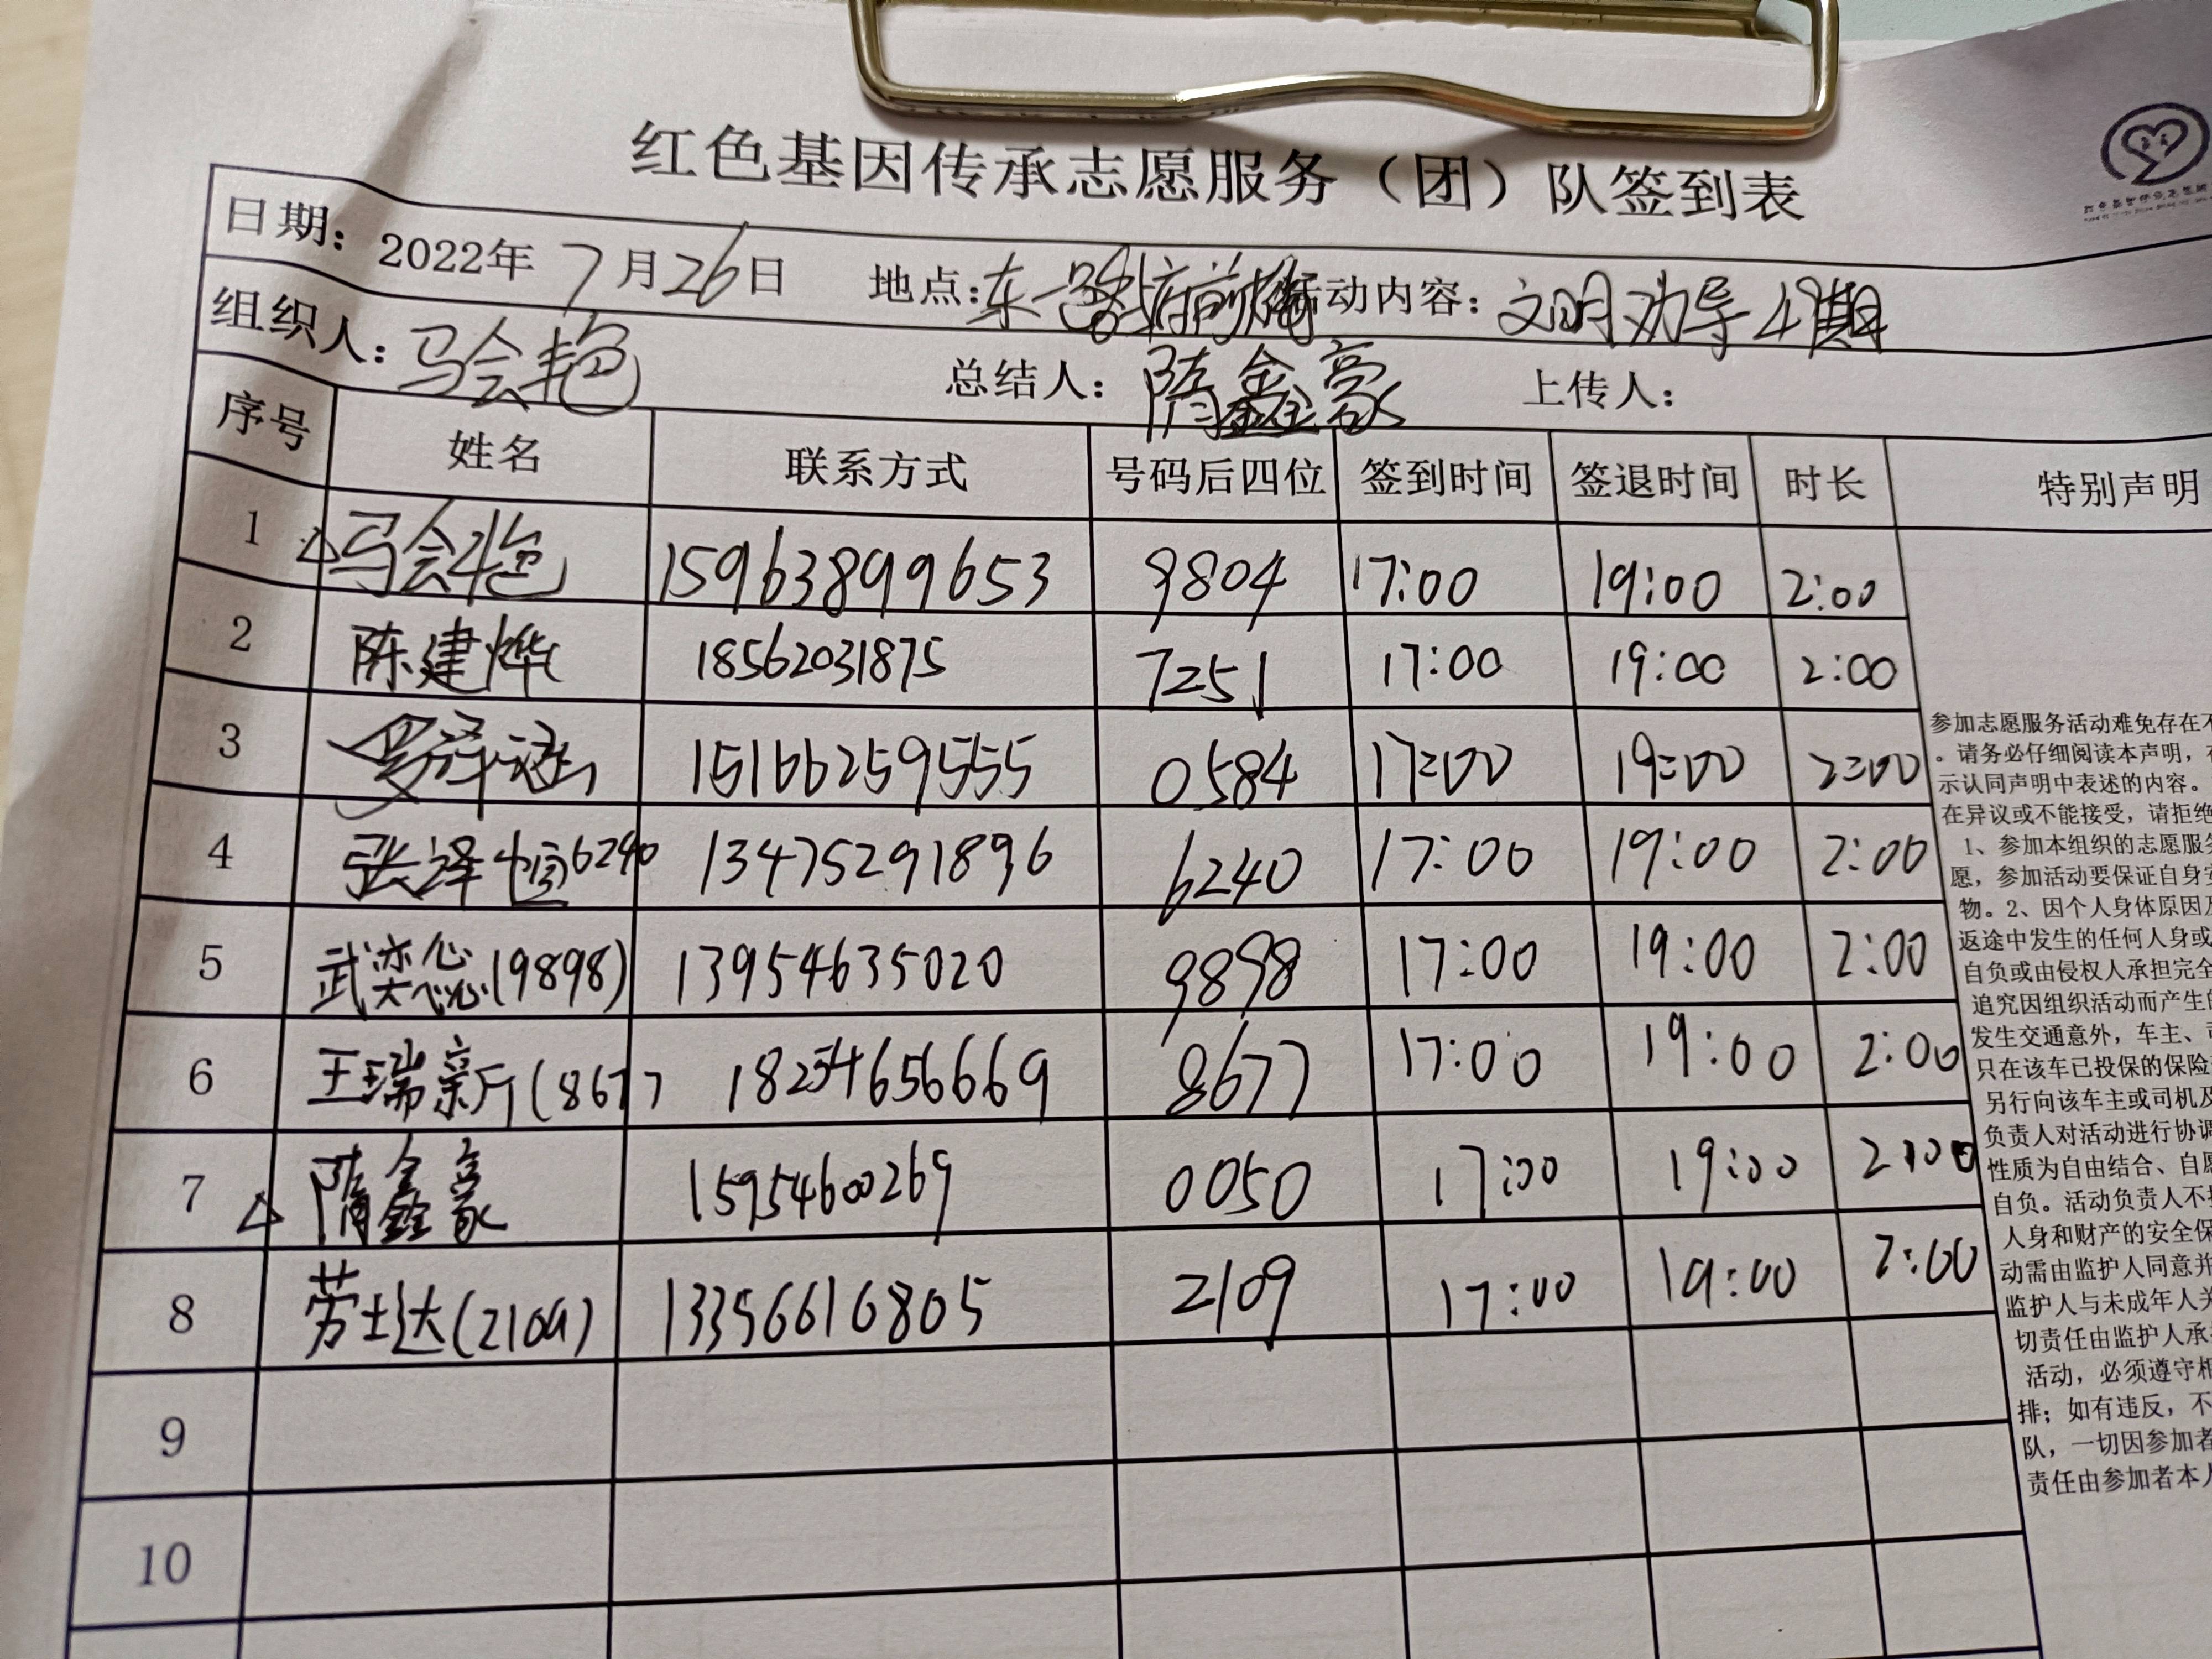 红色基因传承志愿服务（团）队签到表
日期：2022年 7月26日 地点：东一路府前 活动内容：文明劝导49期
组织人：马会艳 总结人：隋鑫豪 上传人：
序号 姓名 联系方式 号码后四位 签到时间 签退时间 时长 特别声明
1 △马会艳 15963899653 9804 17:00 19:00 2:00
2 陈建烨 18562031875 7251 17:00 19:00 2:00
3 罗译涵 15166259555 0584 17:00 19:00 2:00
4 张泽恒6240 13475291896 6240 17:00 19:00 2:00
5 武奕(9898) 13954635020 9898 17:00 19:00 2:00
6 王瑞新(8677 18254656669 8677 17:00 19:00 2:00
7 △隋鑫豪 15954600269 0050 17:00 19:00 2:00
8 劳士达(2109) 13356616805 2109 17:00 19:00 2:00
9
10
参加志愿服务活动难免存在不
。请务必仔细阅读本声明，在
示认同声明中表述的内容。
在异议或不能接受，请拒绝
1、参加本组织的志愿服务
愿，参加活动要保证自身安
物。2、因个人身体原因及
返途中发生的任何人身或
自负或由侵权人承担完全
追究因组织活动而产生的
发生交通意外，车主、司
只在该车已投保的保险
另行向该车主或司机及
负责人对活动进行协调
性质为自由结合、自愿
自负。活动负责人不
人身和财产的安全保
动需由监护人同意并
监护人与未成年人关
切责任由监护人承
活动，必须遵守相
排；如有违反，不
队，一切因参加者
责任由参加者本人